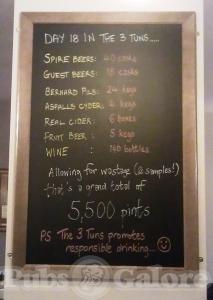 DAY 18 IN THE 3 TUNS.....
SPIRE BEERS: 40 casks
GUEST BEERS: 18 casks
BERNARD PILS: 24 kegs
ASPALLS CYDER: 2 kegs
REAL CIDER: 6 boxes
FRUIT BEER: 5 kegs
WINE: 140 bottles
Allowing for wastage (& samples!)
that's a grand total of
5,500 pints
PS The 3 Tuns promotes
responsible drinking...
Pubs Galore